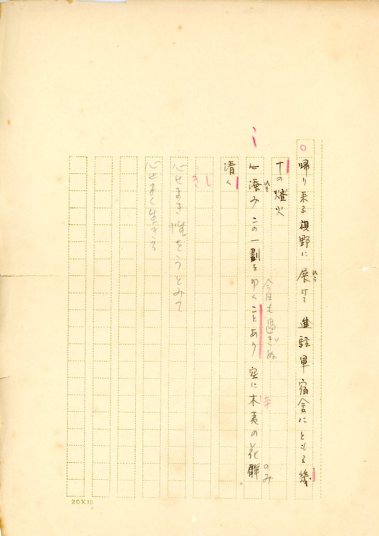 帰り来る視野に展けて進駐軍宿舎にともる幾
十の燈火
心澄みこの一劃を歩くことあり空に木蓮の花
今日も過ぎぬ
のみ
清く
し
き
心せまき性をうとみて
心せまく生きる
20×10